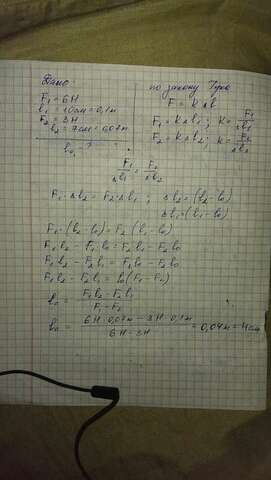 Дано:
F₁ = 6Н
l₁ = 10см = 0,1м
F₂ = 3Н
l₂ = 7см = 0,07м
l₀ - ?
по закону Гука
F = k Δl
F₁ = k Δl₁ ; k = F₁/Δl₁
F₂ = k Δl₂ ; k = F₂/Δl₂
F₁/Δl₁ = F₂/Δl₂
F₁ · Δl₂ = F₂ · Δl₁ ; Δl₂ = (l₂ - l₀)
Δl₁ = (l₁ - l₀)
F₁ · (l₂ - l₀) = F₂ (l₁ - l₀)
F₁ l₂ - F₁ l₀ = F₂ l₁ - F₂ l₀
F₁ l₂ - F₂ l₁ = F₁ l₀ - F₂ l₀
F₁ l₂ - F₂ l₁ = l₀ (F₁ - F₂)
l₀ = (F₁ l₂ - F₂ l₁)/(F₁ - F₂)
l₀ = (6Н · 0,07м - 3Н · 0,1м)/(6Н - 3Н) = 0,04м = 4см